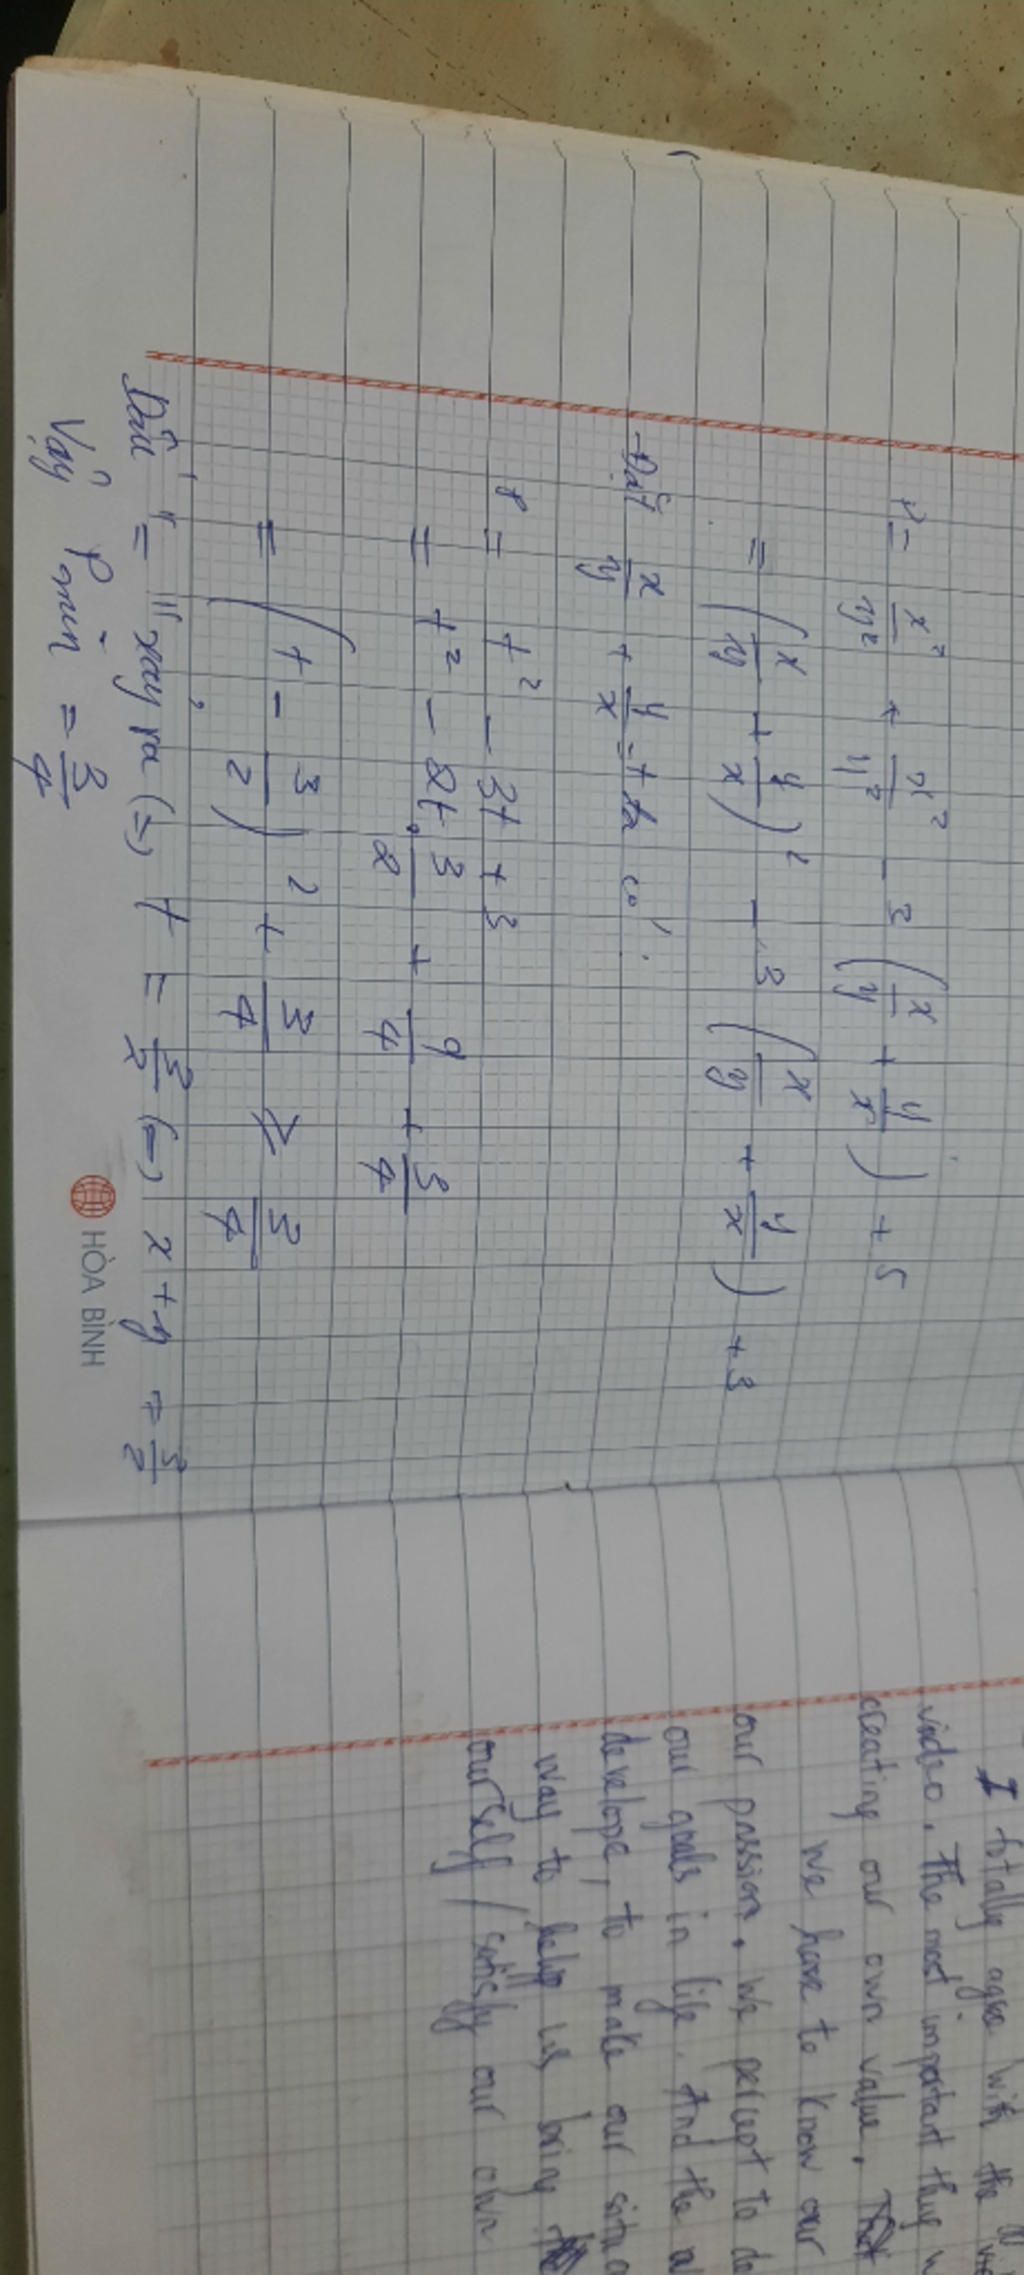 P = x²/y² + y²/x² - 3 (x/y + y/x) + 5
= (x/y + y/x)² - 3 (x/y + y/x) + 3
- Đặt x/y + y/x = t ta có:
P = t² - 3t + 3
= t² - 2t. 3/2 + 9/4 + 3/4
= (t - 3/2)² + 3/4 ≥ 3/4
Dấu "=" xảy ra (=) t = 3/2 (=) x + y = 3/2
Vậy Pmin = 3/4
HÒA BÌNH
I totally agree with the
video. The most important thing
creating our own value.
We have to know our
our passion. We percept to de
our goals in life. And the
develope, to make our
way to help us bring
our self / satisfy our own